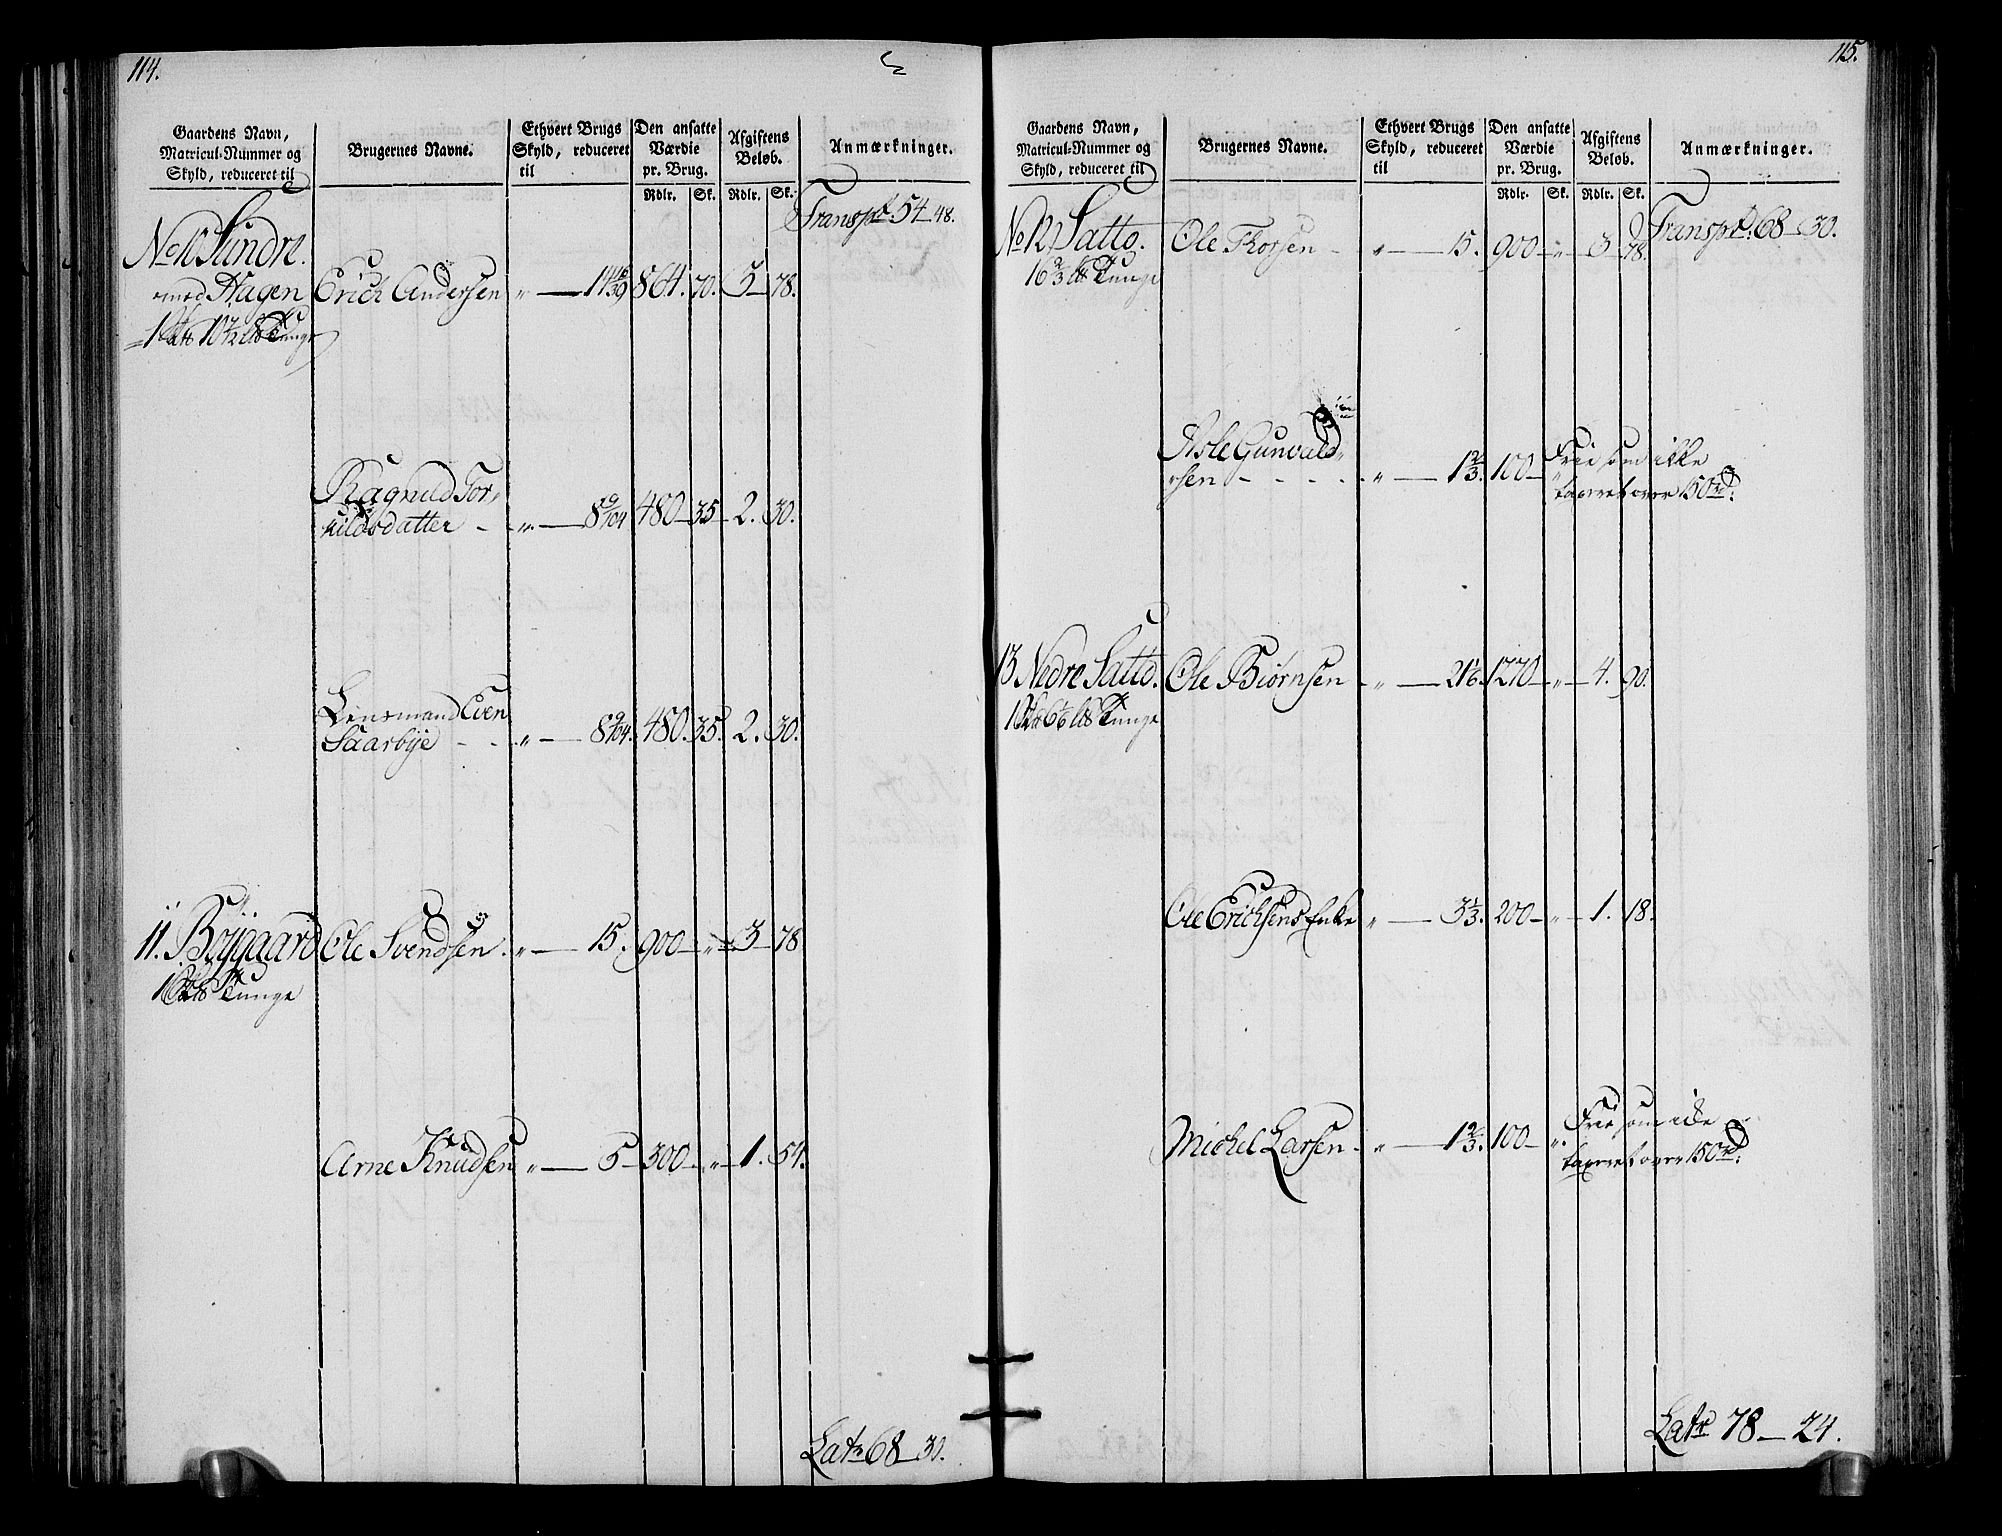 114.
Gaardens Navn,
Matricul-Nummer og
Skyld, reduceret til
Brugernes Navne.
Ethvert Brugs
Skyld, reduceret
til
Den ansatte
Værdie
pr. Brug.
Rdlr. Sk.
Afgiftens
Beløb.
Rdlr. Sk.
Anmærkninger.
Transpt. 54 48.
No 10 Sundre.
med Hagen Erich Andersen " — 864. 70. 78.
Tunge
Ragnild Tor-
kildsdatter - " — 8 9/104 480 35 2. 30.
Lensmand Even
Saarbye - - " — 8 9/104. 480. 35. 2. 30.
11. Bøygaard Ole Svendsen. " — 15. 900 " 3 78
Tunge
Arne Knudsen " — 5 300 " 1. 54.
Latr 68 30.
115.
Gaardens Navn,
Matricul-Nummer og
Skyld, reduceret til
Brugernes Navne.
Ethvert Brugs
Skyld, reduceret
til
Den ansatte
Værdie
pr. Brug.
Rdlr. Sk.
Afgiftens
Beløb.
Rdlr. Sk.
Anmærkninger.
Transpt: 68 30.
No 12 Satto. Ole Thorsen - " — 15. 900 " 3 78.
16 2/3 Tunge
Asle Gunvald-
sen - - - - " — 1 2/3. 100 " Frie som ikke
taxeret over 150 rd:
13 Nedre Satto. Ole Biørnsen - " — 21 1/6. 1270 " 4. 90.
Tunge
Ole Erichsens Enke " — 3 1/3. 200 " 1. 18.
Michel Larsen - " — 1 2/3. 100 " Frie som ikke
taxeret over 150 rd:
Latr 78 — 24.